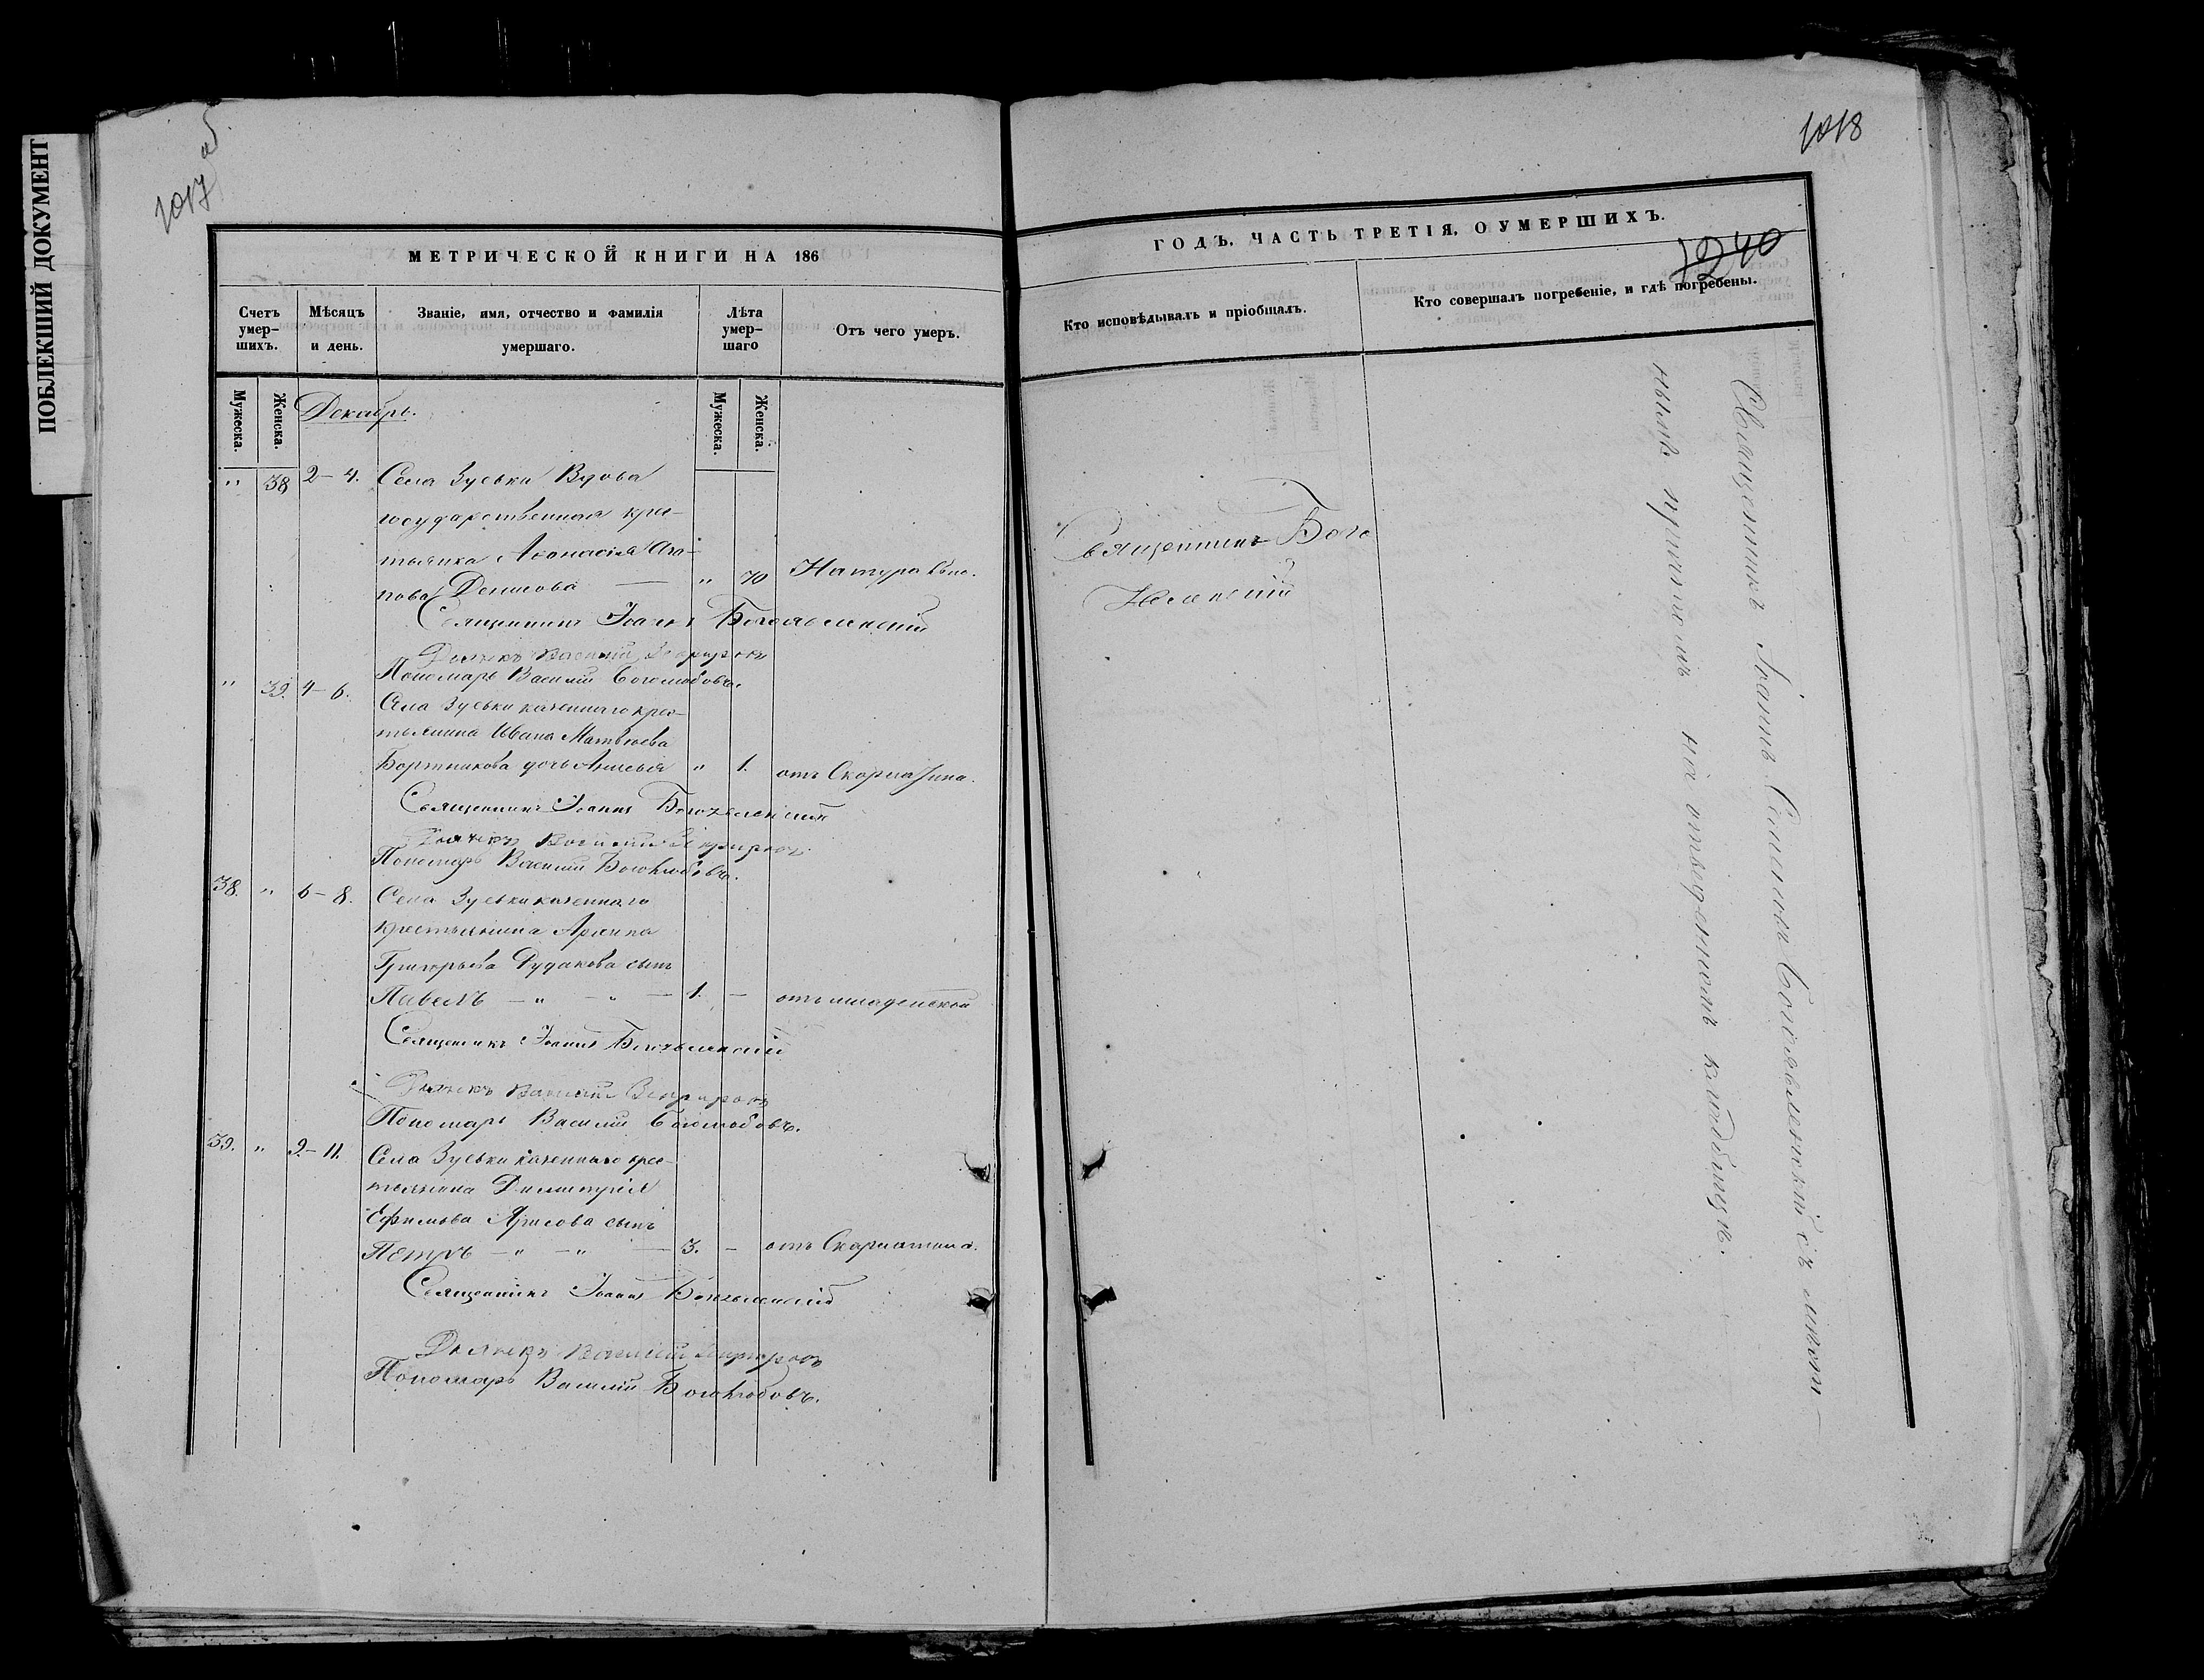 ПОБЛЕКШИЙ ДОКУМЕНТ
1017 об
МЕТРИЧЕСКОЙ КНИГИ НА 186
Счетъ умер-шихъ.
Мѣсяцъ и день.
Званіе, имя, отчество и фамилія умершаго.
Лѣта умер-шаго
Отъ чего умеръ.
Мужеска.
Женска.
Мужеска.
Женска.
Декабрь.
" 38 2-4. Села Зуевки Вдова
государственная кре-
стьянка Афанасія Ага-
пова Денисова — " 70 Натурально.
Священникъ Іоаннъ Богоявленскій
Дьячекъ Василій
Пономарь Василій Боголюбовъ.
" 39. 4-6. Села Зуевки казеннаго крес-
тьянина Ивана Матвѣева
Бортникова дочь " 1. отъ Скарлатина.
Священникъ Іоаннъ Богоявленскій
Дьячекъ Василій
Пономарь Василій Боголюбовъ.
38. " 6-8. Села Зуевки казеннаго
крестьянина Архипа
Григорьева Дудакова сынъ
Павелъ — " — " — 1. — отъ младенской
Священникъ Іоаннъ Богоявленскій
Дьячекъ Василій
Пономарь Василій Боголюбовъ.
39. " 9-11. Села Зуевки казеннаго крес-
тьянина Димитрія
Ефимова сынъ
Петръ — " — " — 3. — отъ Скарлатина.
Священникъ Іоаннъ Богоявленскій
Дьячекъ Василій
Пономарь Василій Боголюбовъ.
1018
ГОДЪ, ЧАСТЬ ТРЕТІЯ, О УМЕРШИХЪ.
1240
Кто исповѣдывалъ и пріобщалъ.
Кто совершалъ погребеніе, и гдѣ погребены.
Священникъ Бого
явленскій
Священникъ Іоаннъ Богоявленскій съ
нымъ причтомъ на отведенномъ кладбищѣ.